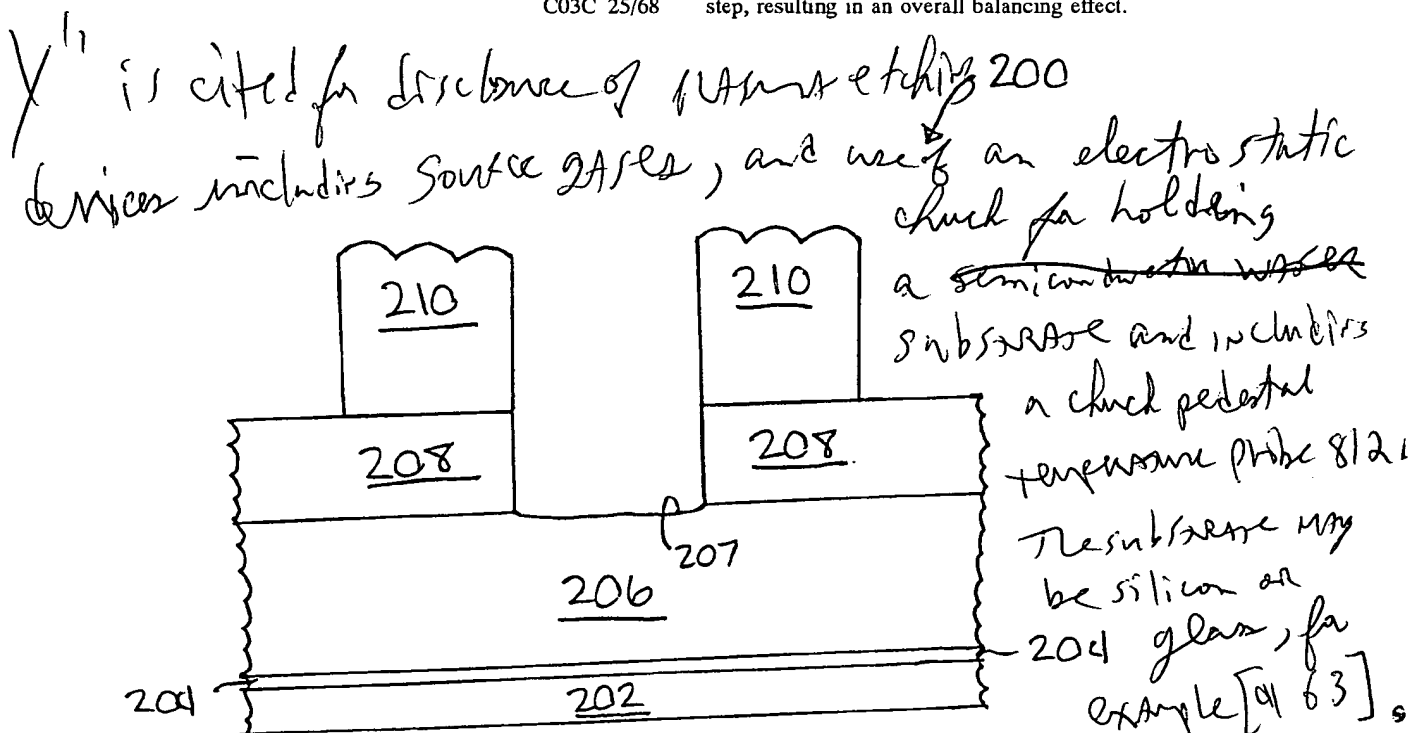 C03C 25/68 step, resulting in an overall balancing effect.
Y" is cited for disclosure of plasma etching 200
devices includes source gases, and use of an electrostatic
chuck for holding
a semiconductor wafer
substrate and includes
a chuck pedestal
temperature probe 812.
The substrate may
be silicon or
glass, for
example [¶ 63].
210
210
208
208
207
206
204
204
202